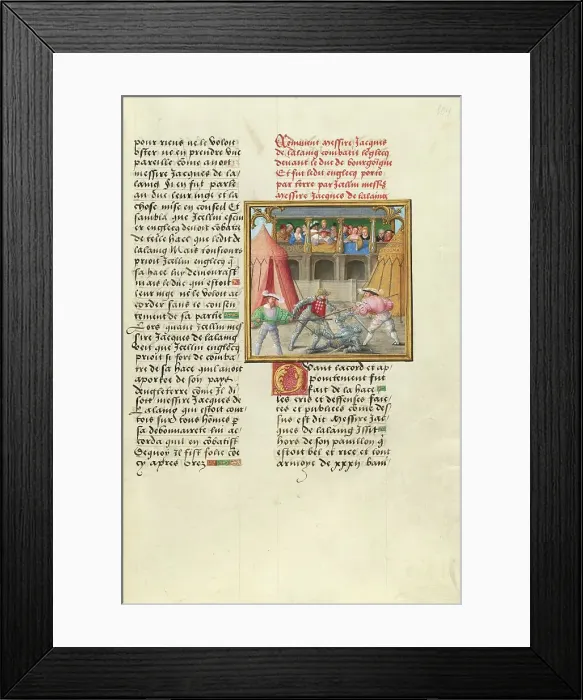 pour riens ne le voloit
oster ne en prendre vne
pareille côme avoit
messire Jacques de la
laing Si en fut parlé
au duc leur iuge et la
chose mise en conseil Et
sambla que Icellui escui
er englecq devoit côbatre
de telle hace que ledit de
lalaing Mais tousiours
prioit Icellui englecq q̃
sa hace luy demourast
mais le duc qui estoit
leur iuge ne le voloit ac
corder sans le consen
tement de sa partie
Lors quant Icellui mes
sire Jacques de lalaing
veit que Icellui englecq
prioit si fort de comba
tre de sa hace qui lauoit
aportee de son pays
dengleterre côme Il di
soit messire Jacques de
Lalaing qui estoit cour
tois sur tous hômes p
sa debonnairete lui ac
corda quil en côbatist
Dequoy Il fist folie côe
cy apres Orez
Comment messire Jacques
de lalaing combatit lenglecq
devant le duc de bourgoigne
Et fut ledit englecq porté
par terre par Icellui messe
messire Jacques de lalaing
Quant lacord et ap
pointement fut
fait de la hace
les cris et deffenses fais
tes et publiees côme des
sus est dit Messire Jac
ques de lalaing Issit
hors de son pauillon q̃
estoit bel et rice et tout
armoye de xxxii ban